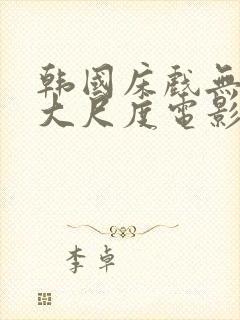 韩国床戲無
大尺度電影
李卓